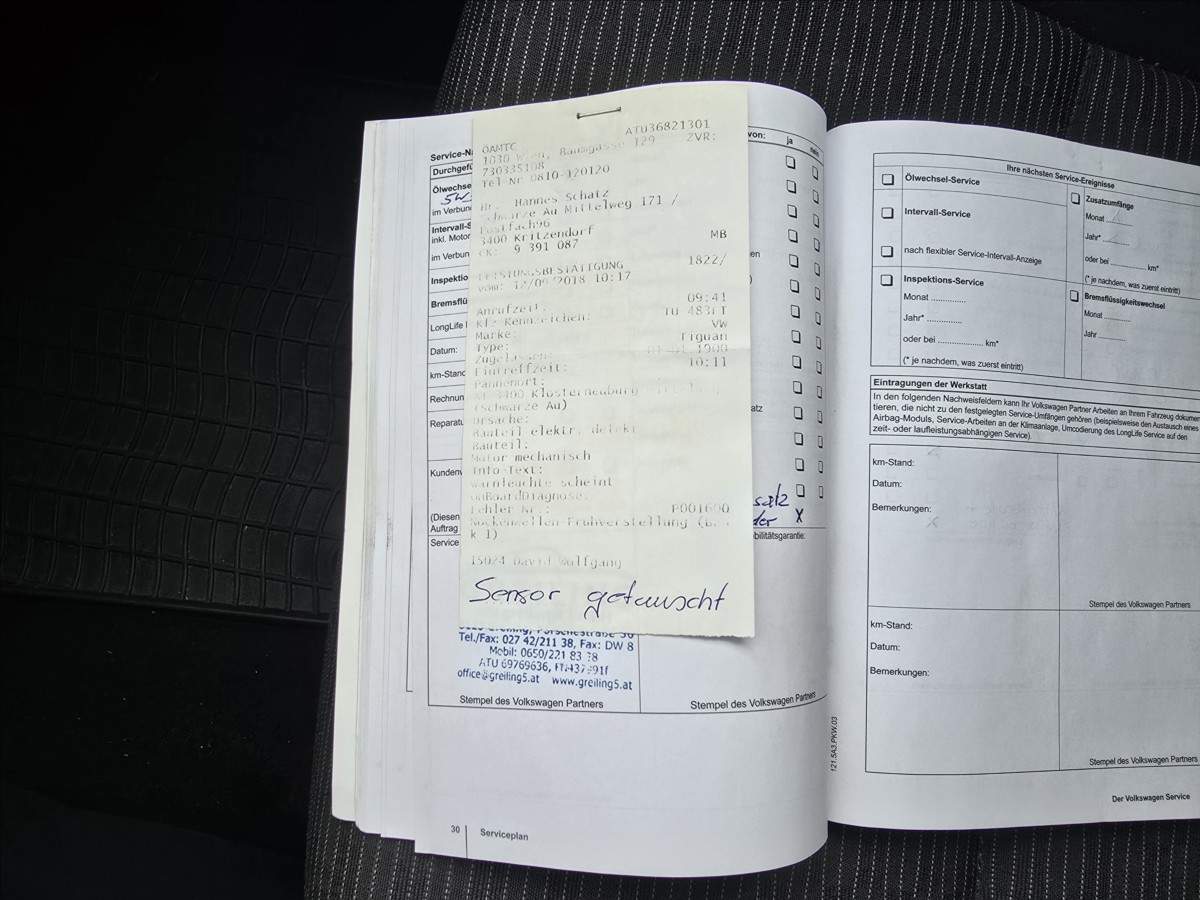 ÖAMTC ATU36821301
1030 Wien, Baumgasse 129 ZVR:
730335108
Tel Nr 0810-120120
Hr. Hannes Schatz
Schwarze Au Mittelweg 171 /
Postfach96
3400 Kritzendorf
CK: 9 391 087 MB
LEISTUNGSBESTÄTIGUNG 1822/
vom: 12/09/2018 10:17
Anrufzeit: 09:41
Kfz Kennzeichen: TU 483FT
Marke: VW
Type: Tiguan
Zugelassen: 01.01.1900
Eintreffzeit: 10:11
Pannenort:
3400 Klosterneuburg
(Schwarze Au)
Ursache:
Bauteil elektr. defekt
Bauteil:
Motor mechanisch
Info-Text:
Warnleuchte scheint
OnBoardDiagnose:
Fehler Nr.: P001600
Nockenwellen Frühverstellung
k 1)
15024 David Wolfgang
Sensor getauscht
Service-N
Durchgefü
Ölwechse
5W
im Verbun
Intervall-S
inkl. Motor
im Verbun
Inspektio
Bremsflü
LongLife
Datum:
km-Stand
Rechnun
Reparatu
Kunden
(Diesen
Auftrag
Service
von: ja nein
en
)
atz
satz
der X
bilitätsgarantie:
Tel./Fax: 027 42/211 38, Fax: DW 8
Mobil: 0650/221 83 38
ATU 69769636,
office@greiling5.at www.greiling5.at
Stempel des Volkswagen Partners
Stempel des Volkswagen Partners
30 Serviceplan
Ihre nächsten Service-Ereignisse
Ölwechsel-Service
Intervall-Service
nach flexibler Service-Intervall-Anzeige
Inspektions-Service
Monat ..............
Jahr* ..............
oder bei .................... km*
(* je nachdem, was zuerst eintritt)
Zusatzumfänge
Monat ...........
Jahr* ...........
oder bei .............. km*
(* je nachdem, was zuerst eintritt)
Bremsflüssigkeitswechsel
Monat ...........
Jahr ...........
Eintragungen der Werkstatt
In den folgenden Nachweisfeldern kann Ihr Volkswagen Partner Arbeiten an Ihrem Fahrzeug dokumen
tieren, die nicht zu den festgelegten Service-Umfängen gehören (beispielsweise den Austausch eines
Airbag-Moduls, Service-Arbeiten an der Klimaanlage, Umcodierung des LongLife Service auf den
zeit- oder laufleistungsabhängigen Service).
km-Stand:
Datum:
Bemerkungen:
Stempel des Volkswagen Partners
km-Stand:
Datum:
Bemerkungen:
Stempel des Volkswagen Partners
121.5A3.PKW.03
Der Volkswagen Service